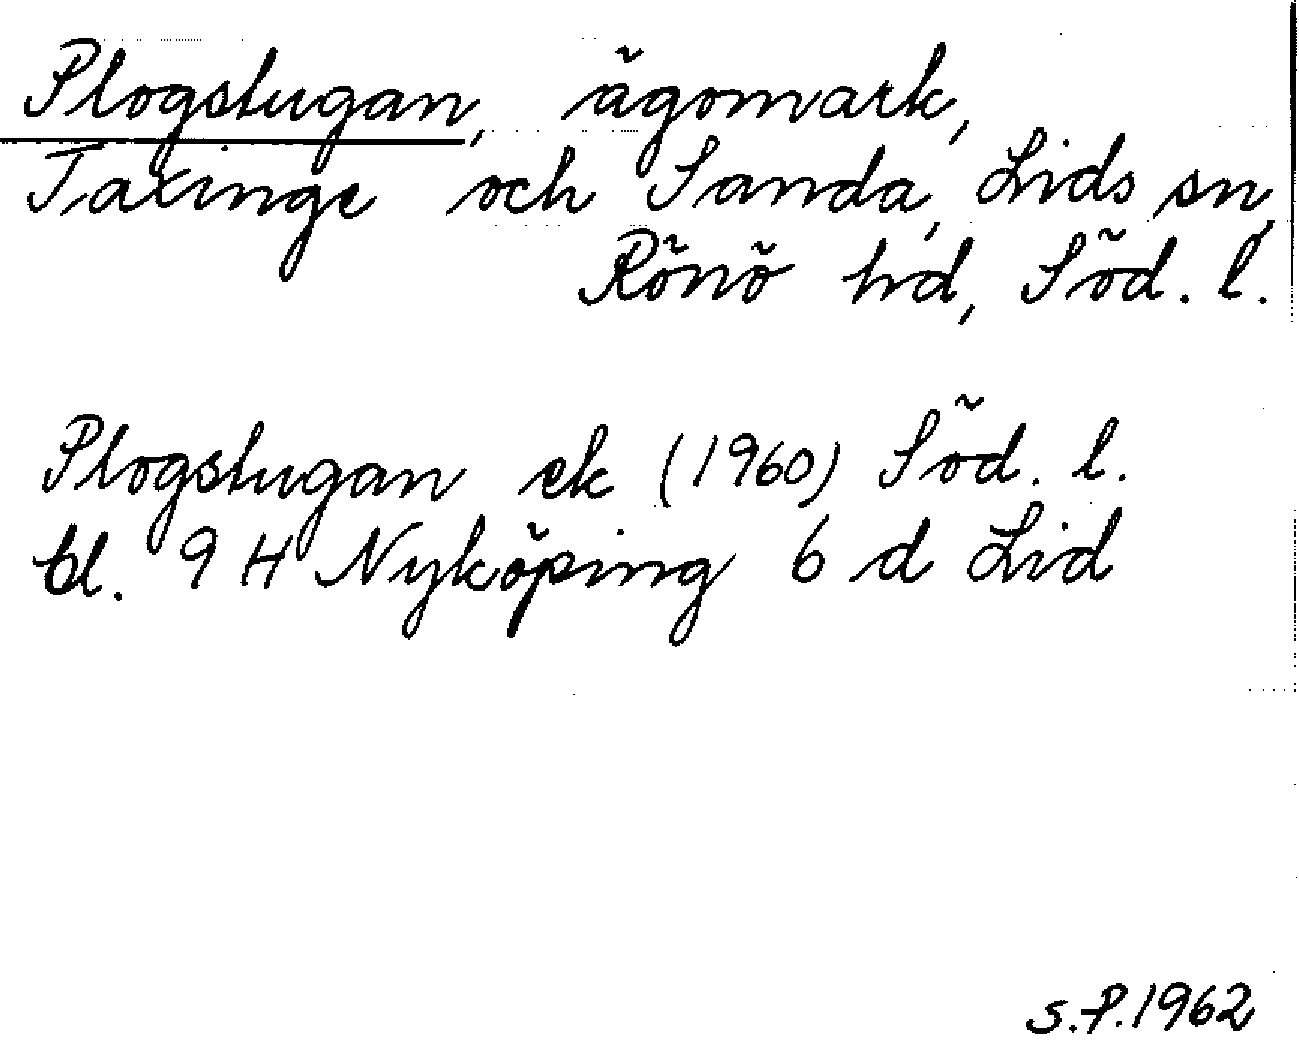 Plogstugan, ägomark,
Taxinge och Sanda, Lids sn,
Rönö hd, Söd. l.
Plogstugan ek (1960) Söd. l.
bl. 9 H Nyköping 6 d Lid
S.P. 1962